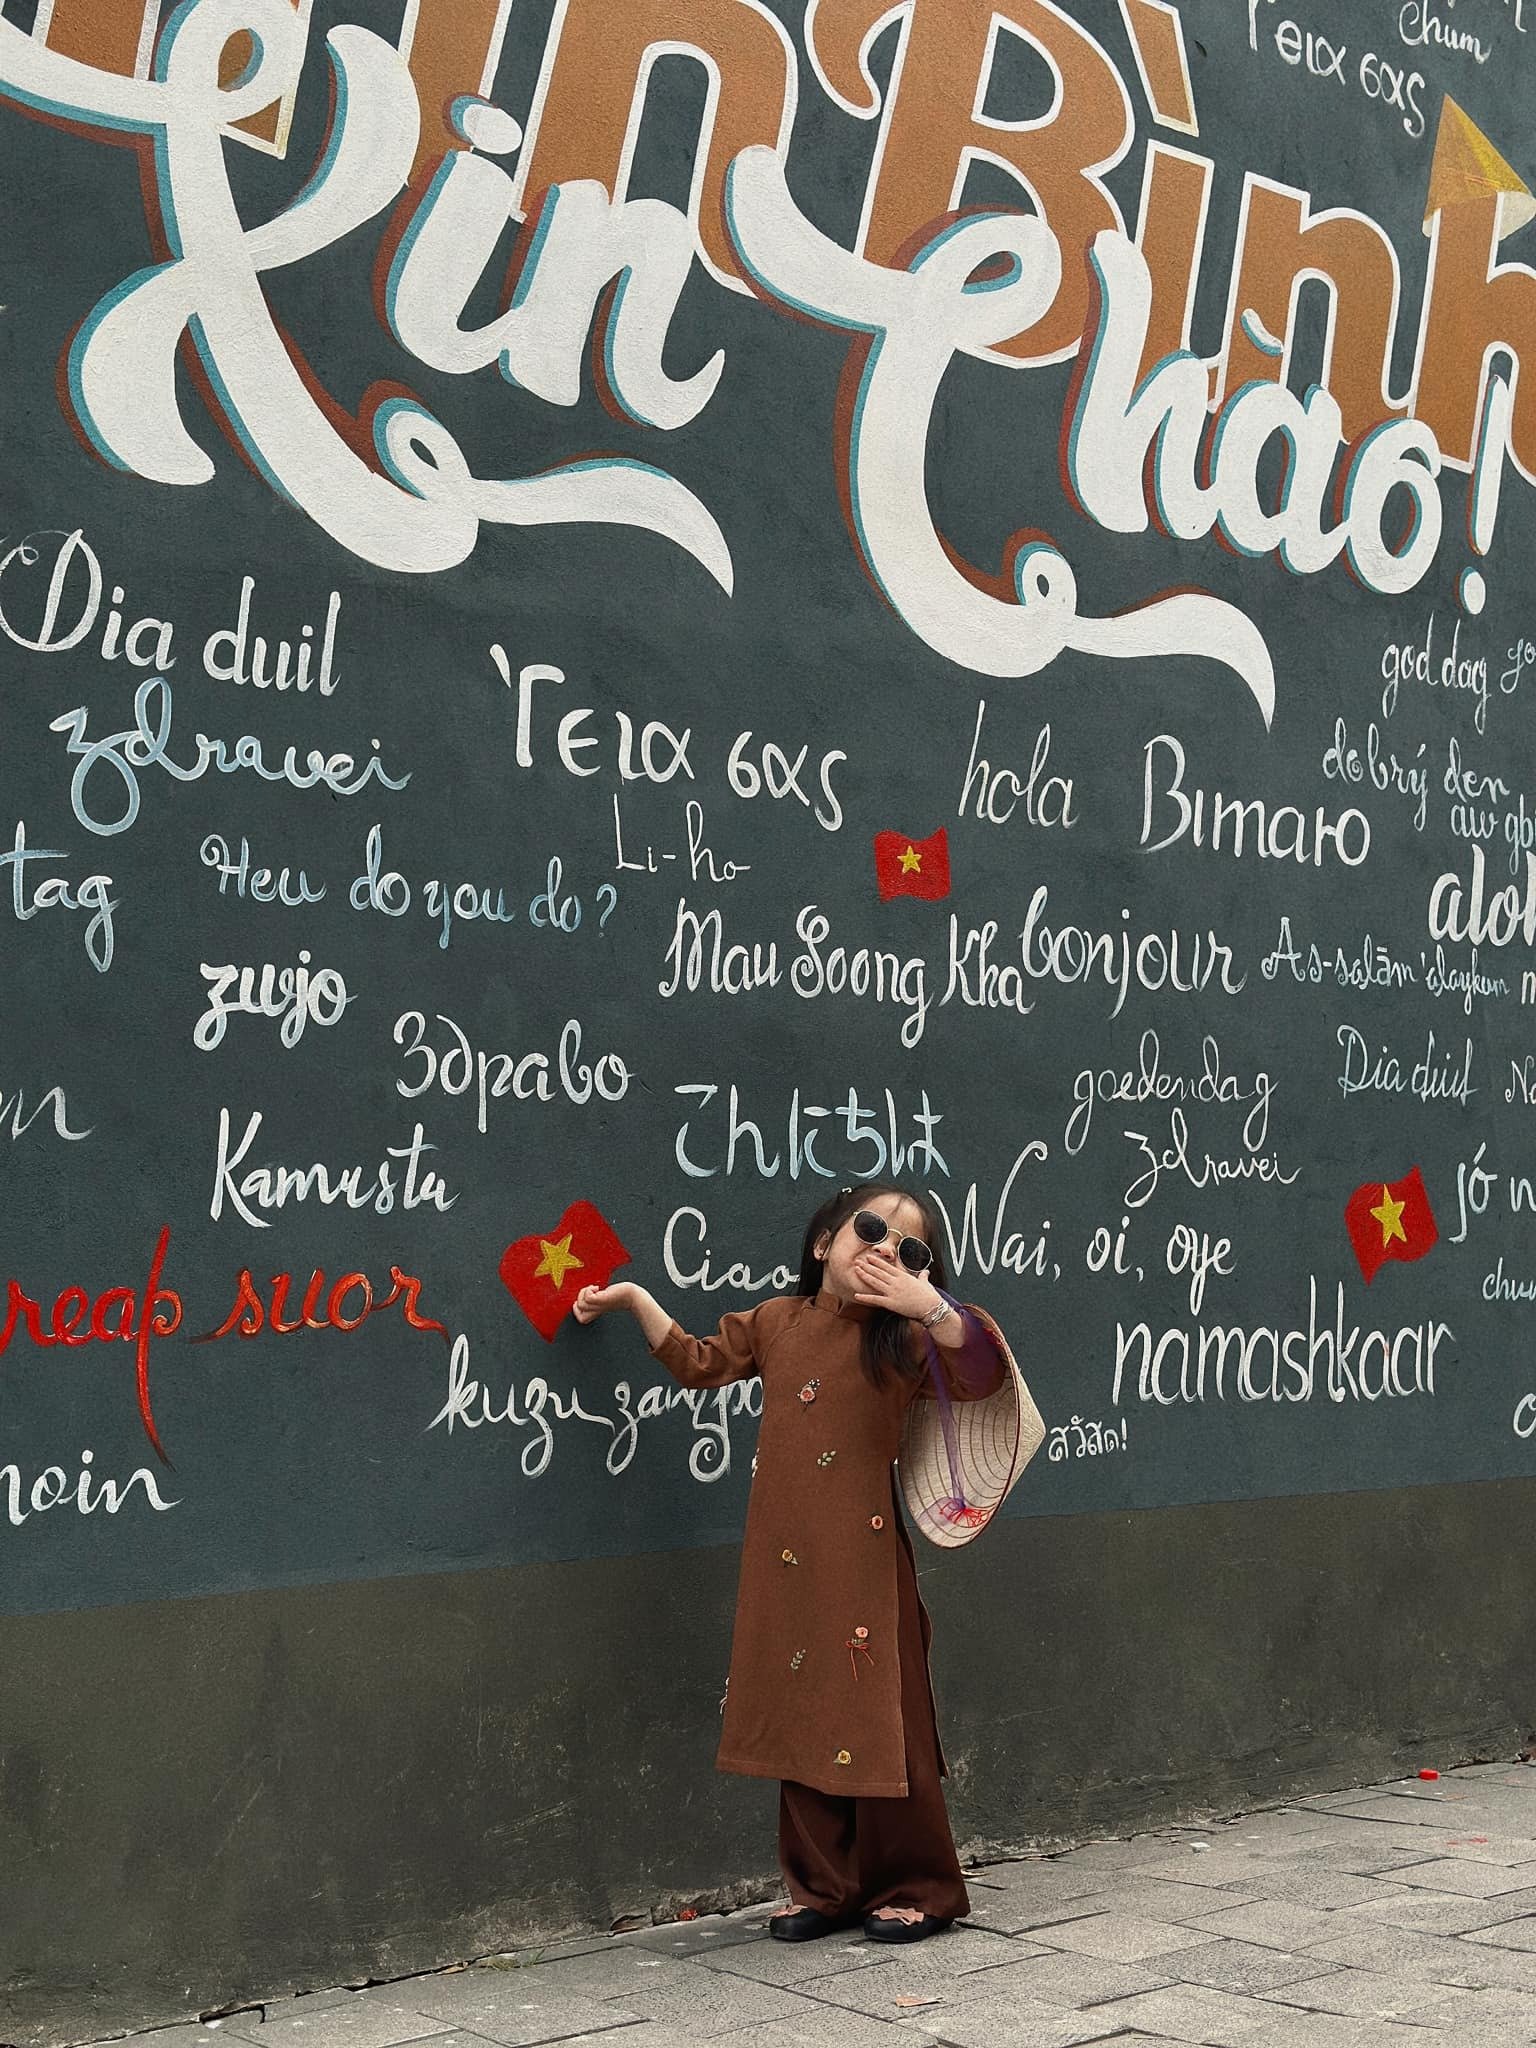 Ninh Bình
Xin Chào!
chum
Γεια σας
Dia duil
zdravei
Γεια σας
hola
Bimaro
god dag
dobrý den
Li-ho
tag
Heu do you do?
Mau Soong Kha
bonjour
As-salām 'alaykum
zwjo
Здраво
こんにちは
goedendag
Dia duil
zdravei
Kamusta
Ciao
Wai, oi, oye
reap suor
kuzu zangpo
namashkaar
สวัสด!